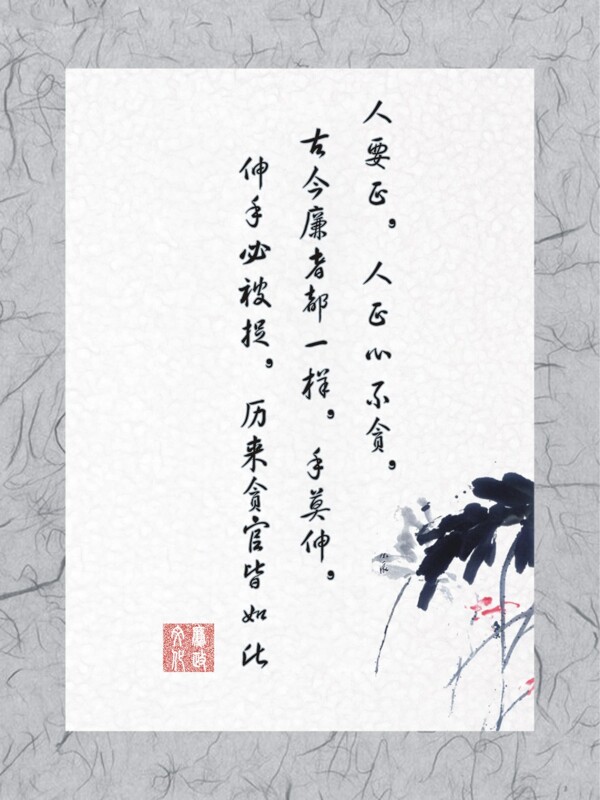 人要正，人正心不贪，
古今廉者都一样，手莫伸，
伸手必被捉，历来贪官皆如此
廉政
文化